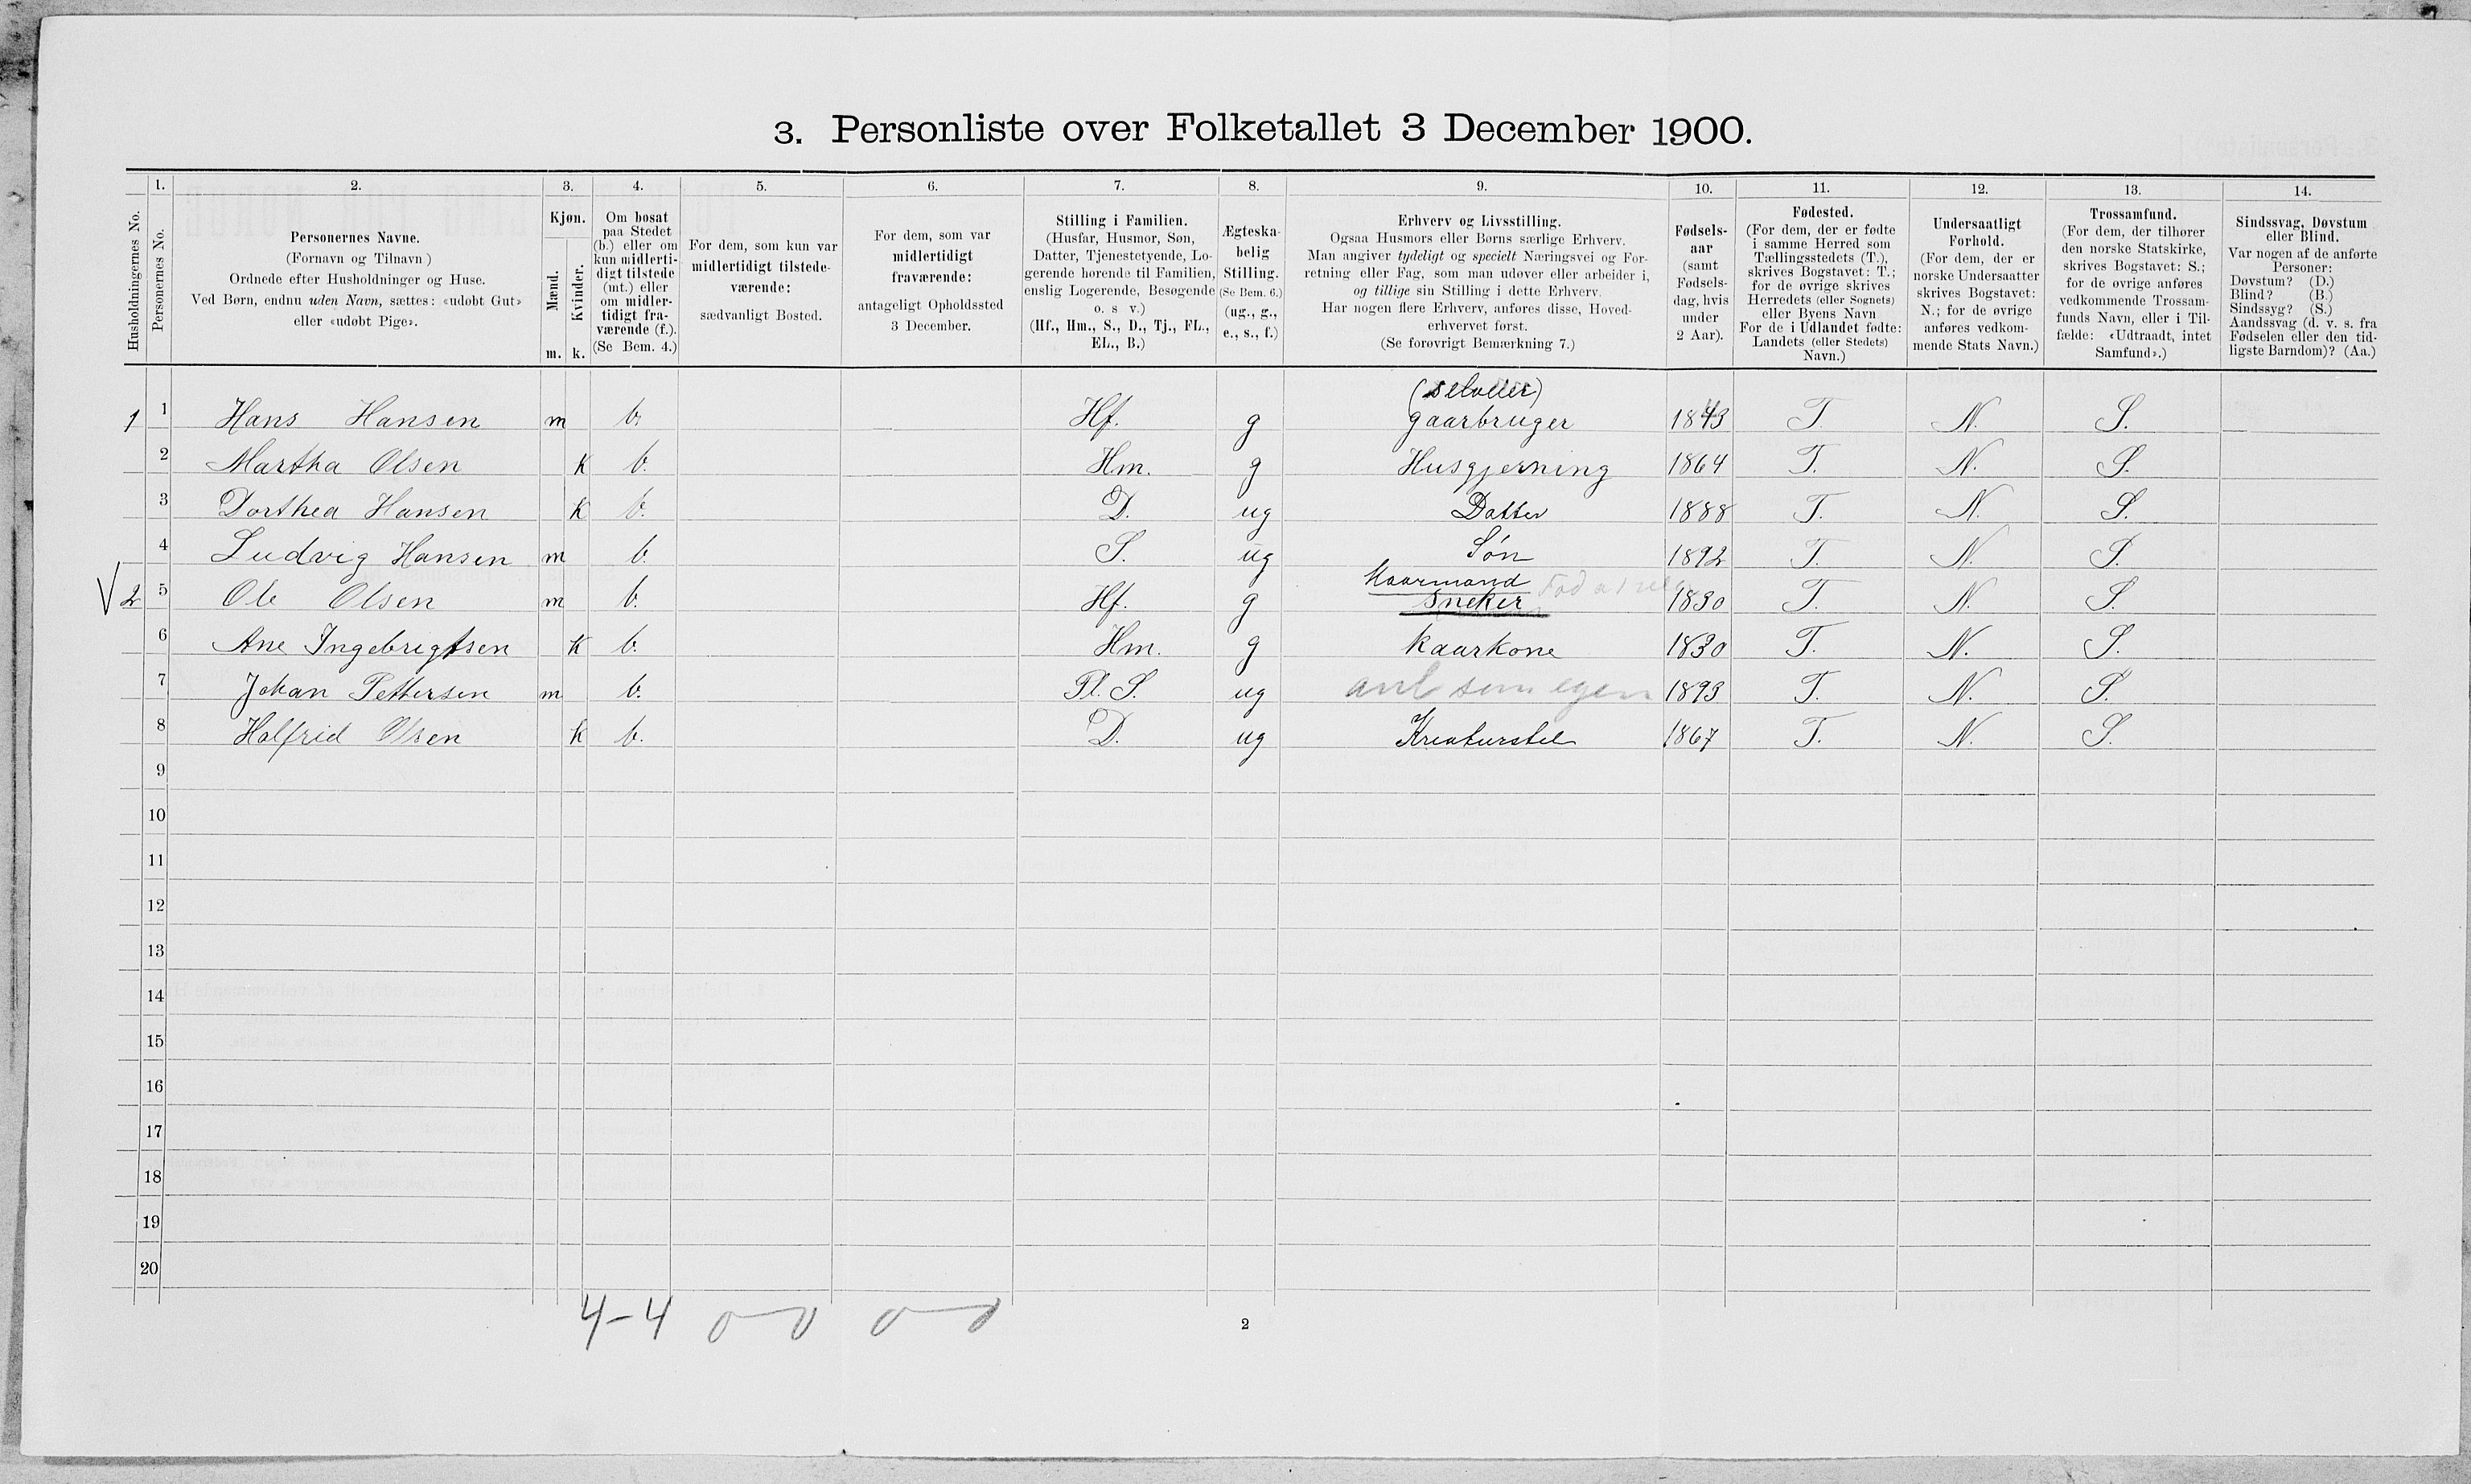 3. Personliste over Folketallet 3 December 1900.
Husholdningernes No.
1. Personernes No.
2. Personernes Navne.
(Fornavn og Tilnavn)
Ordnede efter Husholdninger og Huse.
Ved Børn, endnu uden Navn, sættes: «udøbt Gut»
eller «udøbt Pige».
3. Kjøn.
Mænd. Kvinder.
m. k.
4. Om bosat
paa Stedet
(b.) eller om
kun midlerti-
digt tilstede
(mt.) eller
om midler-
tidigt fra-
værende (f.).
(Se Bem. 4.)
5. For dem, som kun var
midlertidigt tilstede-
værende:
sædvanligt Bosted.
6. For dem, som var
midlertidigt
fraværende:
antageligt Opholdssted
3 December.
7. Stilling i Familien.
(Husfar, Husmor, Søn,
Datter, Tjenestetyende, Lo-
gerende hørende til Familien,
enslig Logerende, Besøgende
o. s v.)
(Hf., Hm., S., D., Tj., FL.,
EL., B.)
8. Ægteska-
belig
Stilling.
(Se Bem. 6.)
(ug., g.,
e., s., f.)
9. Erhverv og Livsstilling.
Ogsaa Husmors eller Børns særlige Erhverv.
Man angiver tydeligt og specielt Næringsvei og For-
retning eller Fag, som man udøver eller arbeider i,
og tillige sin Stilling i dette Erhverv.
Har nogen flere Erhverv, anføres disse, Hoved-
erhvervet først.
(Se forøvrigt Bemærkning 7.)
10. Fødsels-
aar
(samt
Fødsels-
dag, hvis
under
2 Aar).
11. Fødested.
(For dem, der er fødte
i samme Herred som
Tællingsstedets (T.),
skrives Bogstavet: T.;
for de øvrige skrives
Herredets (eller Sognets)
eller Byens Navn
For de i Udlandet fødte:
Landets (eller Stedets)
Navn.)
12. Undersaatligt
Forhold.
(For dem, der er
norske Undersaatter
skrives Bogstavet:
N.; for de øvrige
anføres vedkom-
mende Stats Navn.)
13. Trossamfund.
(For dem, der tilhører
den norske Statskirke,
skrives Bogstavet: S.;
for de øvrige anføres
vedkommende Trossam-
funds Navn, eller i Til-
fælde: «Udtraadt, intet
Samfund».)
14. Sindssvag, Døvstum
eller Blind.
Var nogen af de anførte
Personer:
Døvstum? (D.)
Blind? (B.)
Sindssyg? (S.)
Aandssvag (d. v. s. fra
Fødselen eller den tid-
ligste Barndom)? (Aa.)
(selveier)
1 1 Hans Hansen m b. Hf. g gaarbruger 1843 T. N. S.
2 Martha Olsen K b. Hm. g Husgjerning 1864 T. N. S.
3 Dorthea Hansen K b. D. ug Datter 1888 T. N. S.
4 Ludvig Hansen m b. S. ug Søn 1892 T. N. S.
Kaarmand
V 2 5 Ole Olsen m b. Hf. g Sneker 1830 T. N. S.
6 Ane Ingebrigtsen K b. Hm. g Kaarkone 1830 T. N. S.
7 Johan Pettersen m b. Pl. S. ug som egen 1893 T. N. S.
8 Halfrid Olsen K b. D. ug Kreaturstel 1867 T. N. S.
9
10
11
12
13
14
15
16
17
18
19
20
4-4 0-0 0-0
2